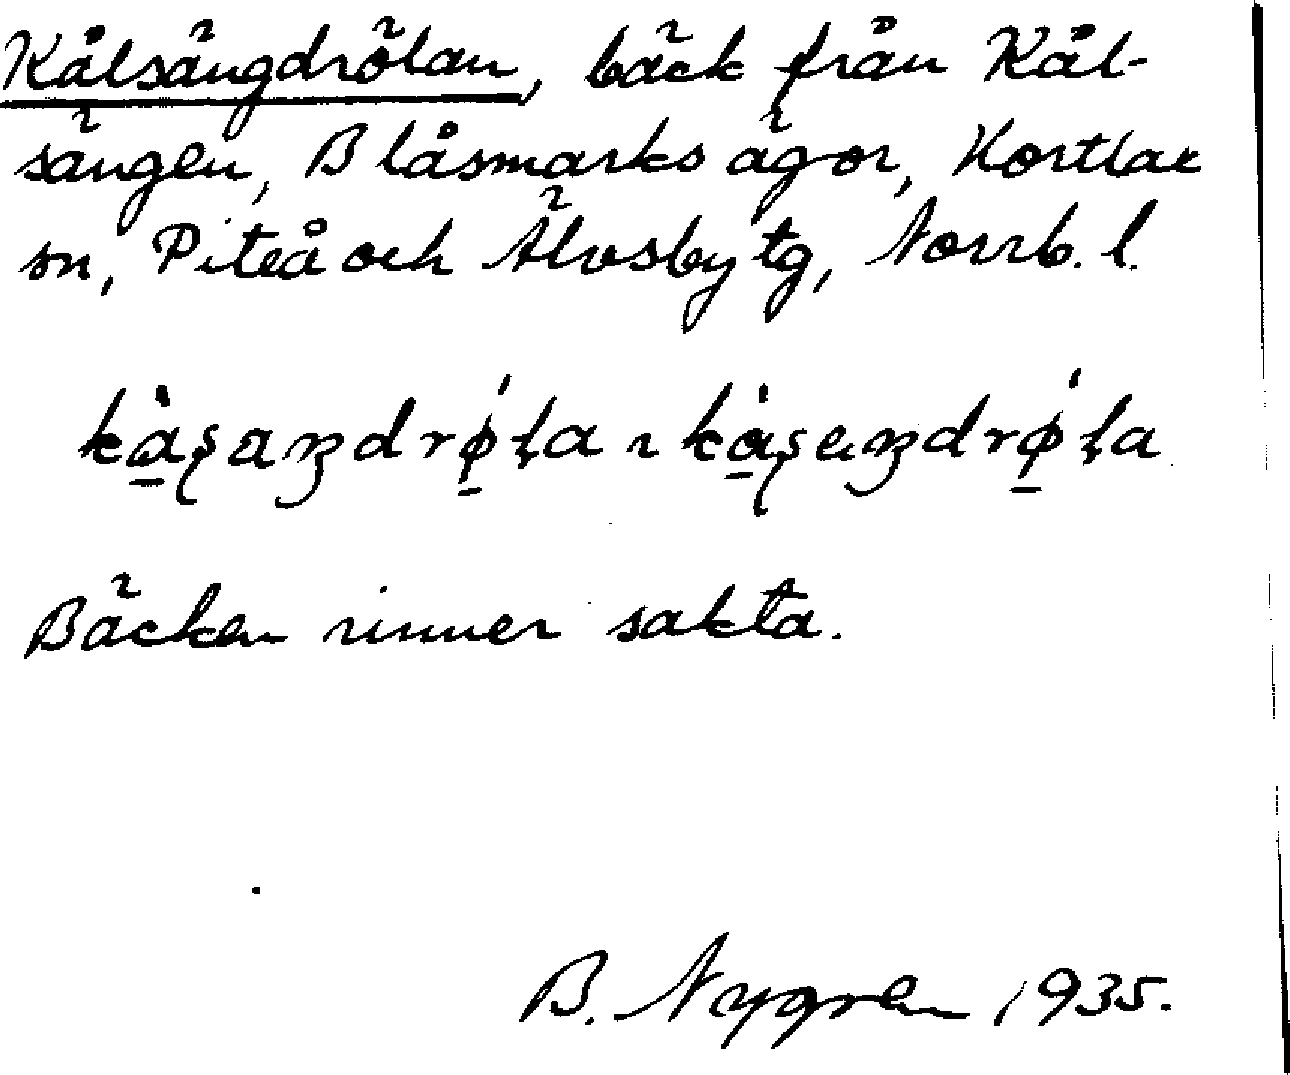 Kålsängdrölan, bäck från Kål-
sängen, Blåsmarks ägor, Hortlax
sn, Piteå och Älvsby tg, Norrb. l.
Bäcken rinner sakta.
B. Nygren 1935.